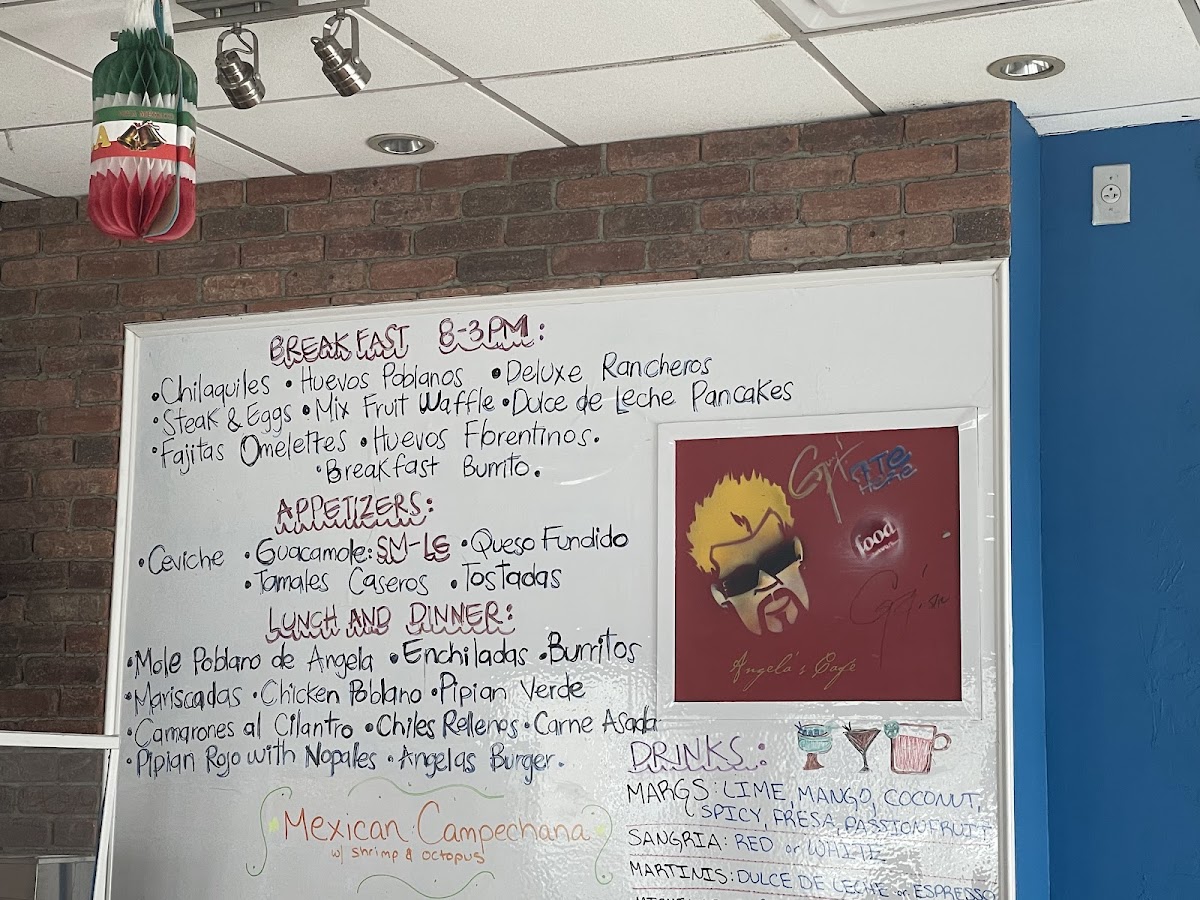 BREAKFAST 8-3PM:
•Chilaquiles •Huevos Poblanos •Deluxe Rancheros
•Steak & Eggs •Mix Fruit Waffle •Dulce de Leche Pancakes
•Fajitas Omelettes •Huevos Florentinos.
•Breakfast Burrito.
APPETIZERS:
•Ceviche •Guacamole: SM-LG •Queso Fundido
•Tamales Caseros •Tostadas
LUNCH AND DINNER:
•Mole Poblano de Angela •Enchiladas •Burritos
•Mariscadas •Chicken Poblano •Pipian Verde
•Camarones al Cilantro •Chiles Rellenos •Carne Asada
•Pipian Rojo with Nopales •Angelas Burger.
Mexican Campechana
w/ shrimp & octopus
ATE
HERE
food
Angela's Café
DRINKS:
MARGS: LIME, MANGO, COCONUT,
SPICY, FRESA, PASSIONFRUIT
SANGRIA: RED or WHITE
MARTINIS: DULCE DE LECHE or ESPRESSO